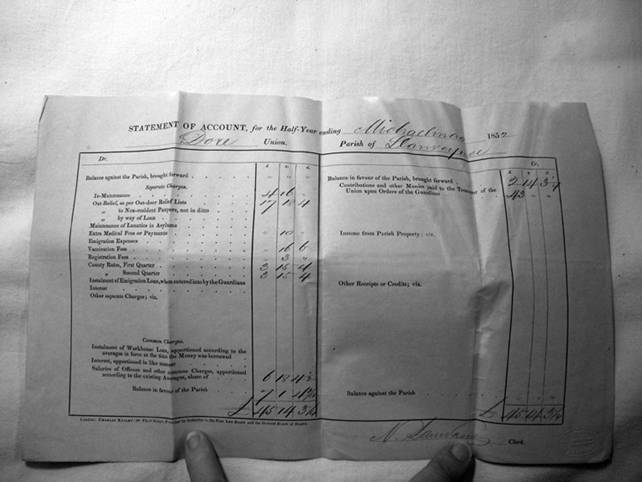 STATEMENT OF ACCOUNT, for the Half-Year ending Michaelmas 1852
Dore Union. Parish of Llanveynoe
Dr. Cr.
£ s. d. £ s. d.
Balance against the Parish, brought forward
Separate Charges.
In-Maintenance 4 16
Out-Relief, as per Out-door Relief Lists 17 12 4
„ to Non-resident Paupers, not in ditto
„ by way of Loan
Maintenance of Lunatics in Asylums
Extra Medical Fees or Payments 10
Emigration Expenses
Vaccination Fees 16 6
Registration Fees 3
County Rates, First Quarter 3 15 4
„ Second Quarter 3 15 4
Instalment of Emigration Loan, when entered into by the Guardians
Interest
Other separate Charges; viz.
Common Charges.
Instalment of Workhouse Loan, apportioned according to the
averages in force at the time the Money was borrowed
Interest, apportioned in like manner
Salaries of Officers and other common Charges, apportioned
according to the existing Averages, share of 6
Balance in favour of the Parish 7 1
£ 45 14 3
Balance in favour of the Parish, brought forward 2 14 3
Contributions and other Monies paid to the Treasurer of the
Union upon Orders of the Guardians 43
Income from Parish Property; viz.
Other Receipts or Credits; viz.
Balance against the Parish
£ 45 14 3
Clerk.
LONDON: CHARLES KNIGHT, 90 FLEET STREET, Publisher by Authority to the Poor Law Board and the General Board of Health.